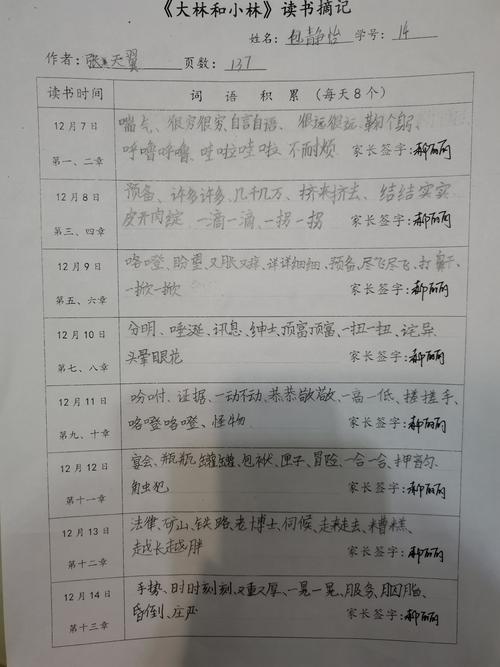 《大林和小林》读书摘记
姓名：包静怡 学号：14
作者：张天翼 页数：137
读书时间 词语积累（每天8个）
12月7日 喘气、很穷很穷、自言自语、很远很远、鞠个躬、
第一、二章 呼噜呼噜、哇啦哇啦、不耐烦 家长签字：郝丽丽
12月8日 预备、许多许多、几千几万、挤来挤去、结结实实
第三、四章 皮开肉绽、一滴一滴、一拐一拐 家长签字：郝丽丽
12月9日 咯噔、盼望、又胀又痒、详详细细、预备、尽飞尽飞、打鼾、
第五、六章 一掀一掀 家长签字：郝丽丽
12月10日 分明、唾涎、讯息、绅士、顶富顶富、一扭一扭、诧异
第七、八章 头晕眼花 家长签字：郝丽丽
12月11日 吩咐、证据、一动不动、恭恭敬敬、一高一低、搓搓手、
第九、十章 咯噔咯噔、怪物 家长签字：郝丽丽
12月12日 宴会、瓶瓶罐罐、包袱、匣子、冒险、一合一合、押韵、
第十一章 触犯 家长签字：郝丽丽
12月13日 法律、矿山、铁路、老博士、伺候、走来走去、糟糕、
第十二章 越长越胖 家长签字：郝丽丽
12月14日 手势、时时刻刻、又重又厚、一晃一晃、服务、胭脂、
第十三章 昏倒、庄严 家长签字：郝丽丽